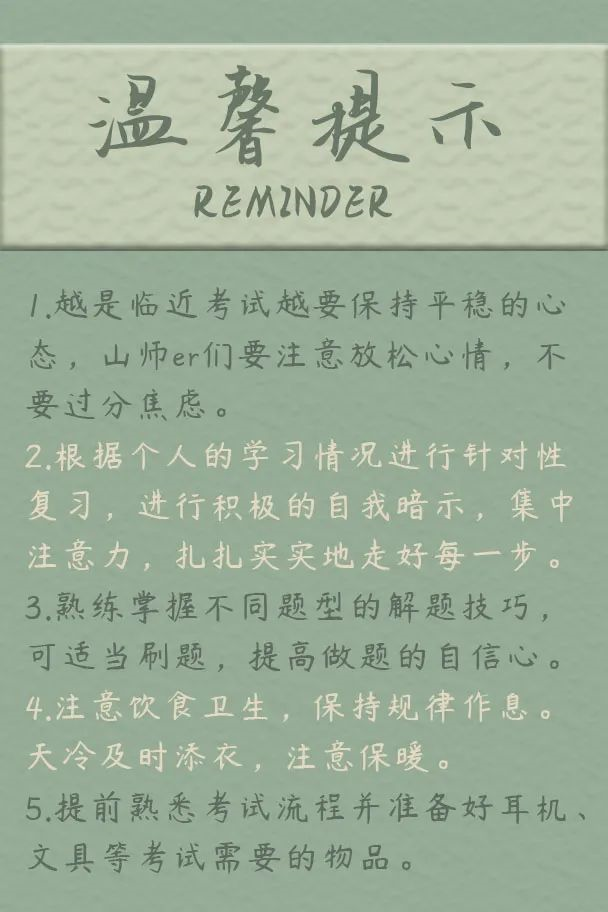 温馨提示
REMINDER
1.越是临近考试越要保持平稳的心
态，山师er们要注意放松心情，不
要过分焦虑。
2.根据个人的学习情况进行针对性
复习，进行积极的自我暗示，集中
注意力，扎扎实实地走好每一步。
3.熟练掌握不同题型的解题技巧，
可适当刷题，提高做题的自信心。
4.注意饮食卫生，保持规律作息。
天冷及时添衣，注意保暖。
5.提前熟悉考试流程并准备好耳机、
文具等考试需要的物品。